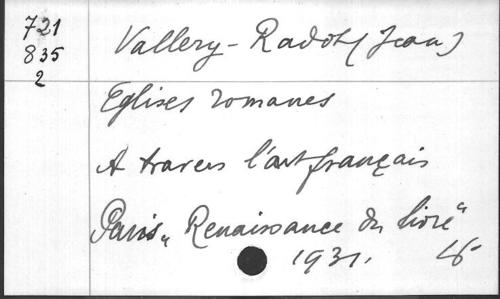 721
835
2
Vallery-Radot (Jean)
Eglises romanes
A travers l'art français
Paris „Renaissance du livre"
1931.